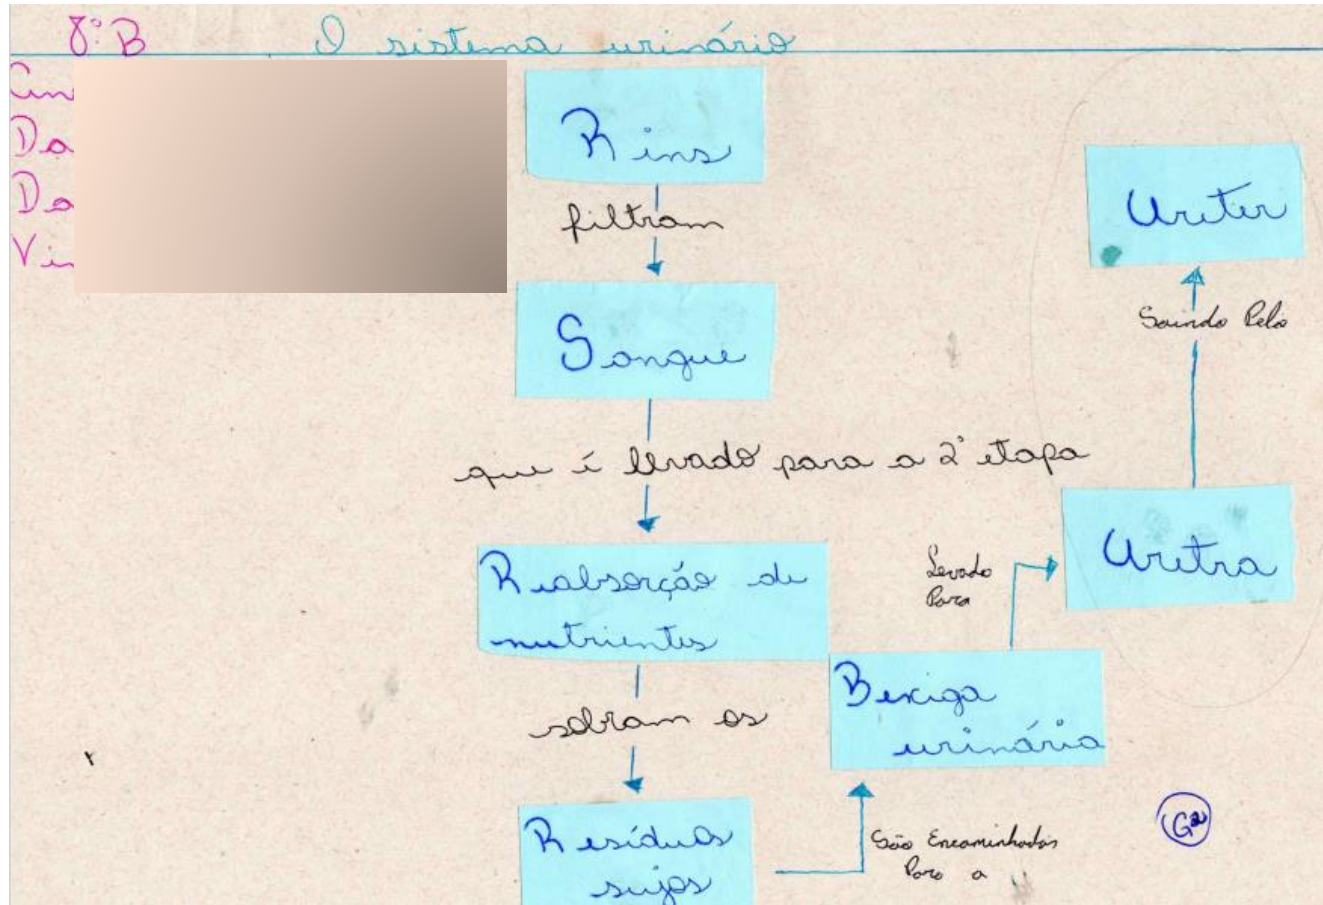 8º B O sistema urinário
Da
Da
Rins
filtram
Sangue
que é levado para a 2ª etapa
Reabsorção de
nutrientes
sobram os
Resíduos
sujos
São Encaminhados
Para a
Bexiga
urinária
Levado
Para
Uretra
Saindo Pelo
Ureter
G2